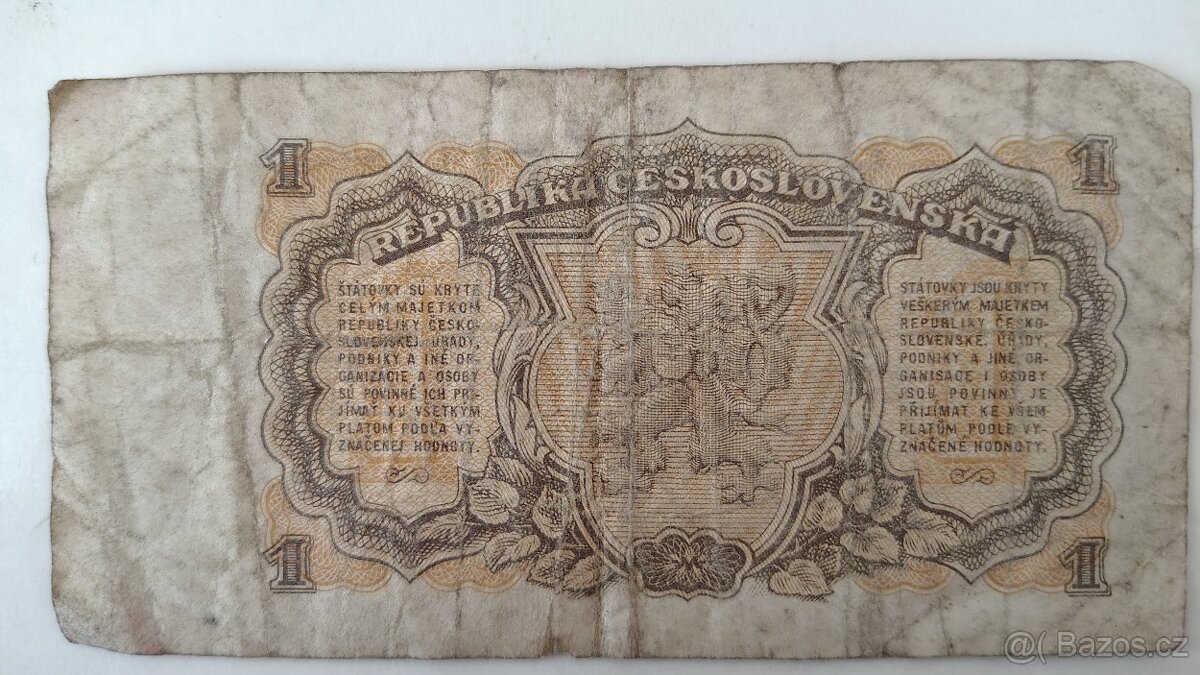 1 1
REPUBLIKA ČESKOSLOVENSKÁ
ŠTÁTOVKY SÚ KRYTÉ
CELÝM MAJETKOM
REPUBLIKY ČESKO-
SLOVENSKEJ. ÚRADY,
PODNIKY A INÉ OR-
GANIZÁCIE A OSOBY
SÚ POVINNÉ ICH PRI-
JÍMAŤ KU VŠETKÝM
PLATOM PODĽA VY-
ZNAČENEJ HODNOTY.
STÁTOVKY JSOU KRYTY
VEŠKERÝM MAJETKEM
REPUBLIKY ČESKO-
SLOVENSKÉ. ÚŘADY,
PODNIKY A JINÉ OR-
GANISACE I OSOBY
JSOU POVINNY JE
PŘIJÍMAT KE VŠEM
PLATŮM PODLE VY-
ZNAČENÉ HODNOTY.
1 1
@( Bazos.cz